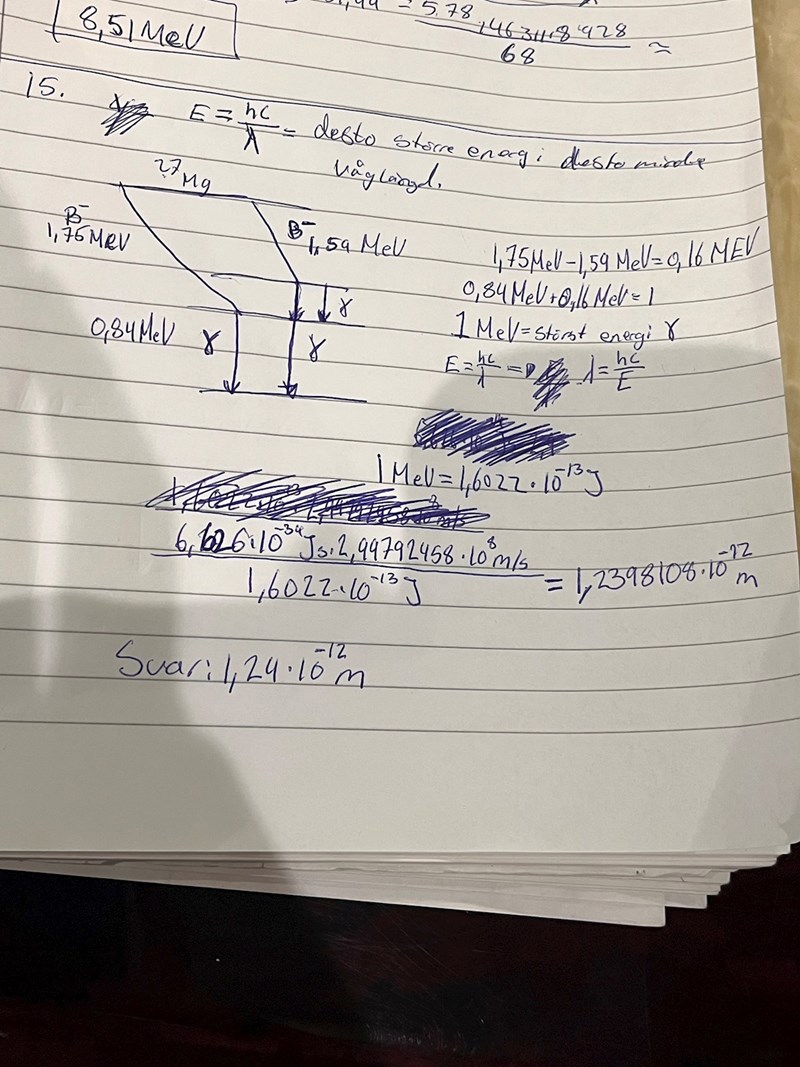 = 5.78
,4631118928
68 ≈
8,51 MeV
15.
E = hc/λ = desto större energi desto mindre
våglängd.
27 Mg
β⁻
1,75 MeV
β⁻ 1,59 MeV
γ
0,84 MeV γ
γ
1,75 MeV - 1,59 MeV = 0,16 MEV
0,84 MeV + 0,16 MeV = 1
1 MeV = störst energi γ
E = hc/λ = λ = hc/E
1 MeV = 1,6022 · 10⁻¹³ J
6,626 · 10⁻³⁴ Js · 2,99792458 · 10⁸ m/s
1,6022 · 10⁻¹³ J
= 1,2398108 · 10⁻¹² m
Svar: 1,24 · 10⁻¹² m